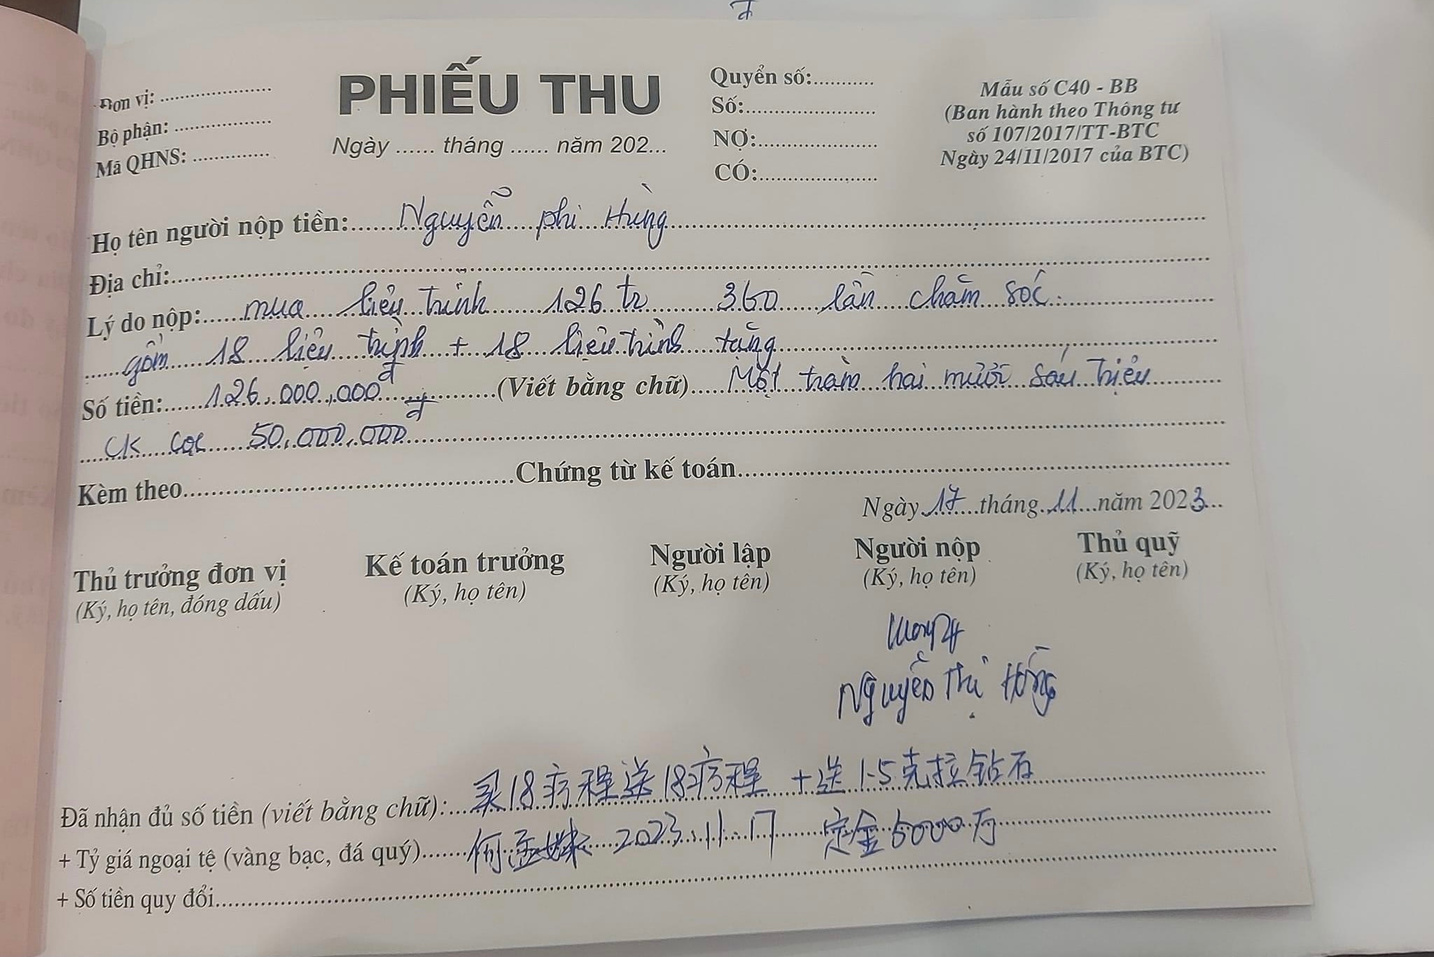 Đơn vị: ....................
Bộ phận: ..................
Mã QHNS: ..............
PHIẾU THU
Ngày ...... tháng ...... năm 202...
Quyển số:...........
Số:.......................
NỢ:......................
CÓ:......................
Mẫu số C40 - BB
(Ban hành theo Thông tư
số 107/2017/TT-BTC
Ngày 24/11/2017 của BTC)
Họ tên người nộp tiền: Nguyễn phi Hùng
Địa chỉ:
Lý do nộp: mua liệu trình 126 tr 360 lần chăm sóc
gồm 18 liệu trình + 18 liệu trình tặng
Số tiền: 126.000.000đ (Viết bằng chữ) Một trăm hai mươi sáu triệu
CK cọc 50.000.000đ
Kèm theo.......Chứng từ kế toán.......
Ngày 17 tháng 11 năm 2023
Thủ trưởng đơn vị
(Ký, họ tên, đóng dấu)
Kế toán trưởng
(Ký, họ tên)
Người lập
(Ký, họ tên)
Người nộp
(Ký, họ tên)
Thủ quỹ
(Ký, họ tên)
Nguyễn Thị Hồng
Đã nhận đủ số tiền (viết bằng chữ): 买18疗程送18疗程 +送1-5克拉钻石
+ Tỷ giá ngoại tệ (vàng bạc, đá quý) 何 2023.11.17 定金5000万
+ Số tiền quy đổi